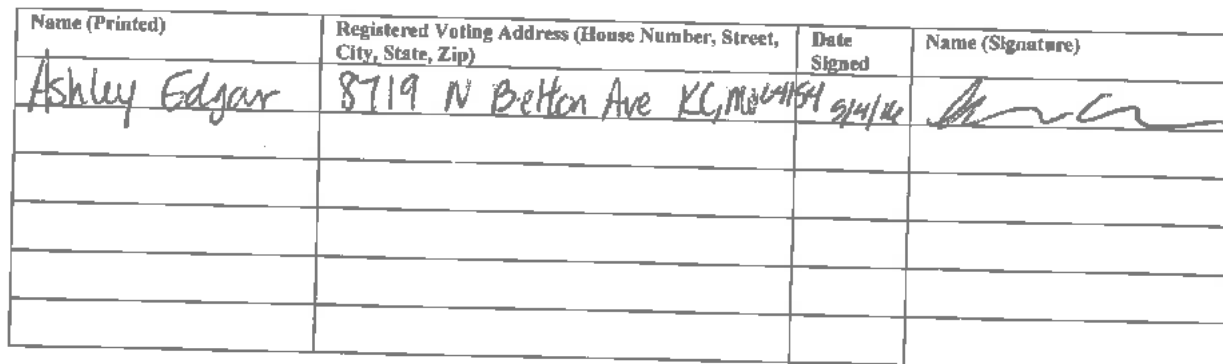 Name (Printed)
Registered Voting Address (House Number, Street,
City, State, Zip)
Date
Signed
Name (Signature)
Ashley Edgar
8719 N Belton Ave KC, Mo 64154
5/4/16